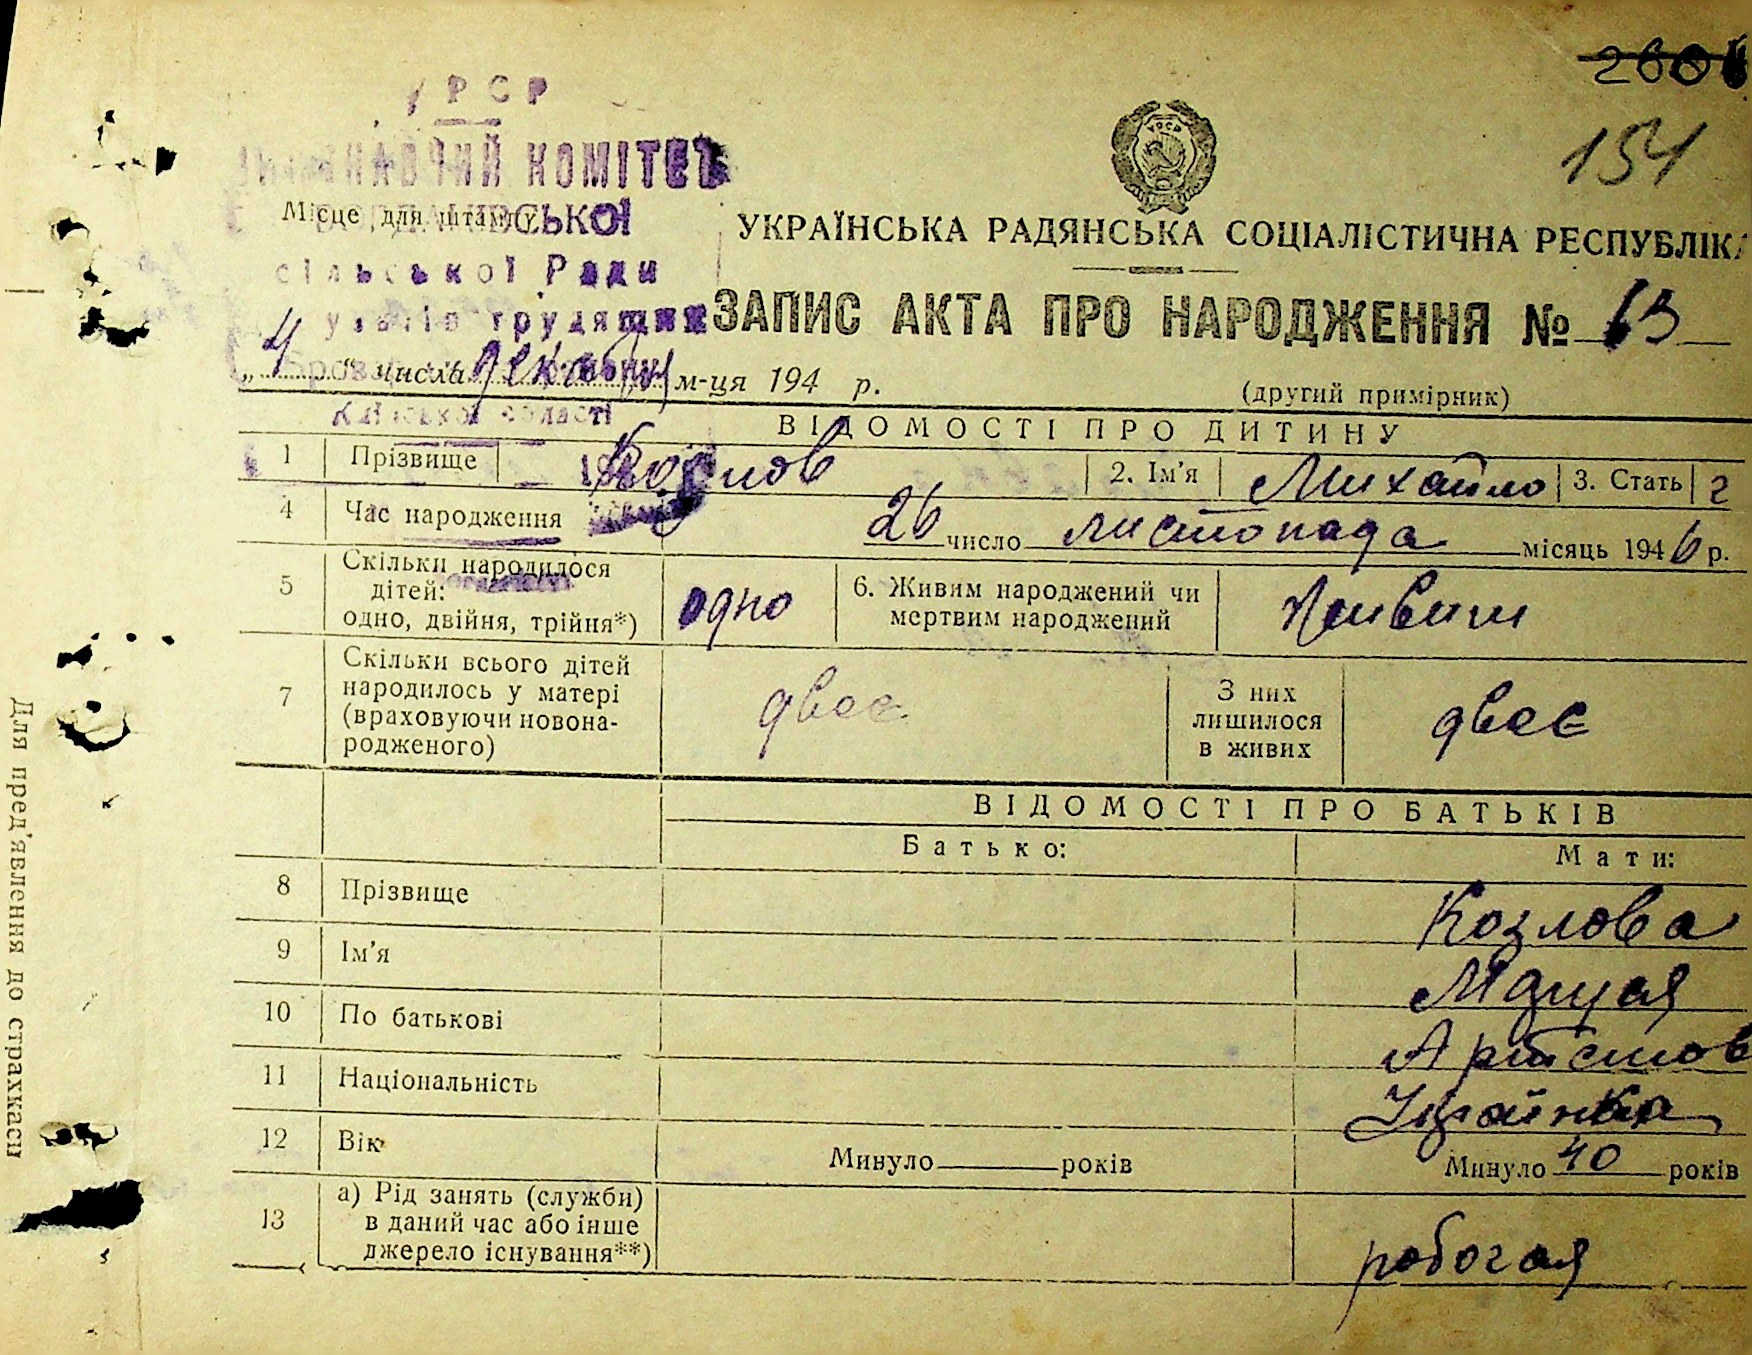 2606
154
РСР
КОМІТЕТ
Місце для штампу
СЬКОЇ
сільської Ради
трудящих
УКРАЇНСЬКА РАДЯНСЬКА СОЦІАЛІСТИЧНА РЕСПУБЛІК
ЗАПИС АКТА ПРО НАРОДЖЕННЯ № 13
„4“ числа декабря м-ця 194 р.
(другий примірник)
Київської області
ВІДОМОСТІ ПРО ДИТИНУ
1 Прізвище Козлов 2. Ім'я Михайло 3. Стать г
4 Час народження 26 число листопада місяць 1946 р.
5 Скільки народилося
дітей:
одно, двійня, трійня*) одно 6. Живим народжений чи
мертвим народжений Живим
7 Скільки всього дітей
народилось у матері
(враховуючи новона-
родженого) двоє З них
лишилося
в живих двоє
ВІДОМОСТІ ПРО БАТЬКІВ
Батько: Мати:
8 Прізвище Козлова
9 Ім'я Маруся
10 По батькові Артемов
11 Національність
12 Вік Минуло років Минуло 40 років
13 а) Рід занять (служби)
в даний час або інше
джерело існування**)
Для пред'явлення до страхкаси